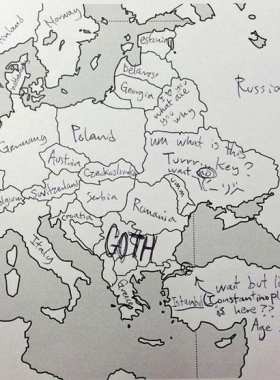 Norway
Estonia
Russia
Belarose
Georgia
what are
you why
Germany
Poland
um what is this
Turrrukey?
wait no
Austria
Czeckoslovakia
umm
Switzerland
Serbia
Romania
croatia
GOTH
Italy
Greece
wait but
Istanbul (Constantinople)
is here??
Age